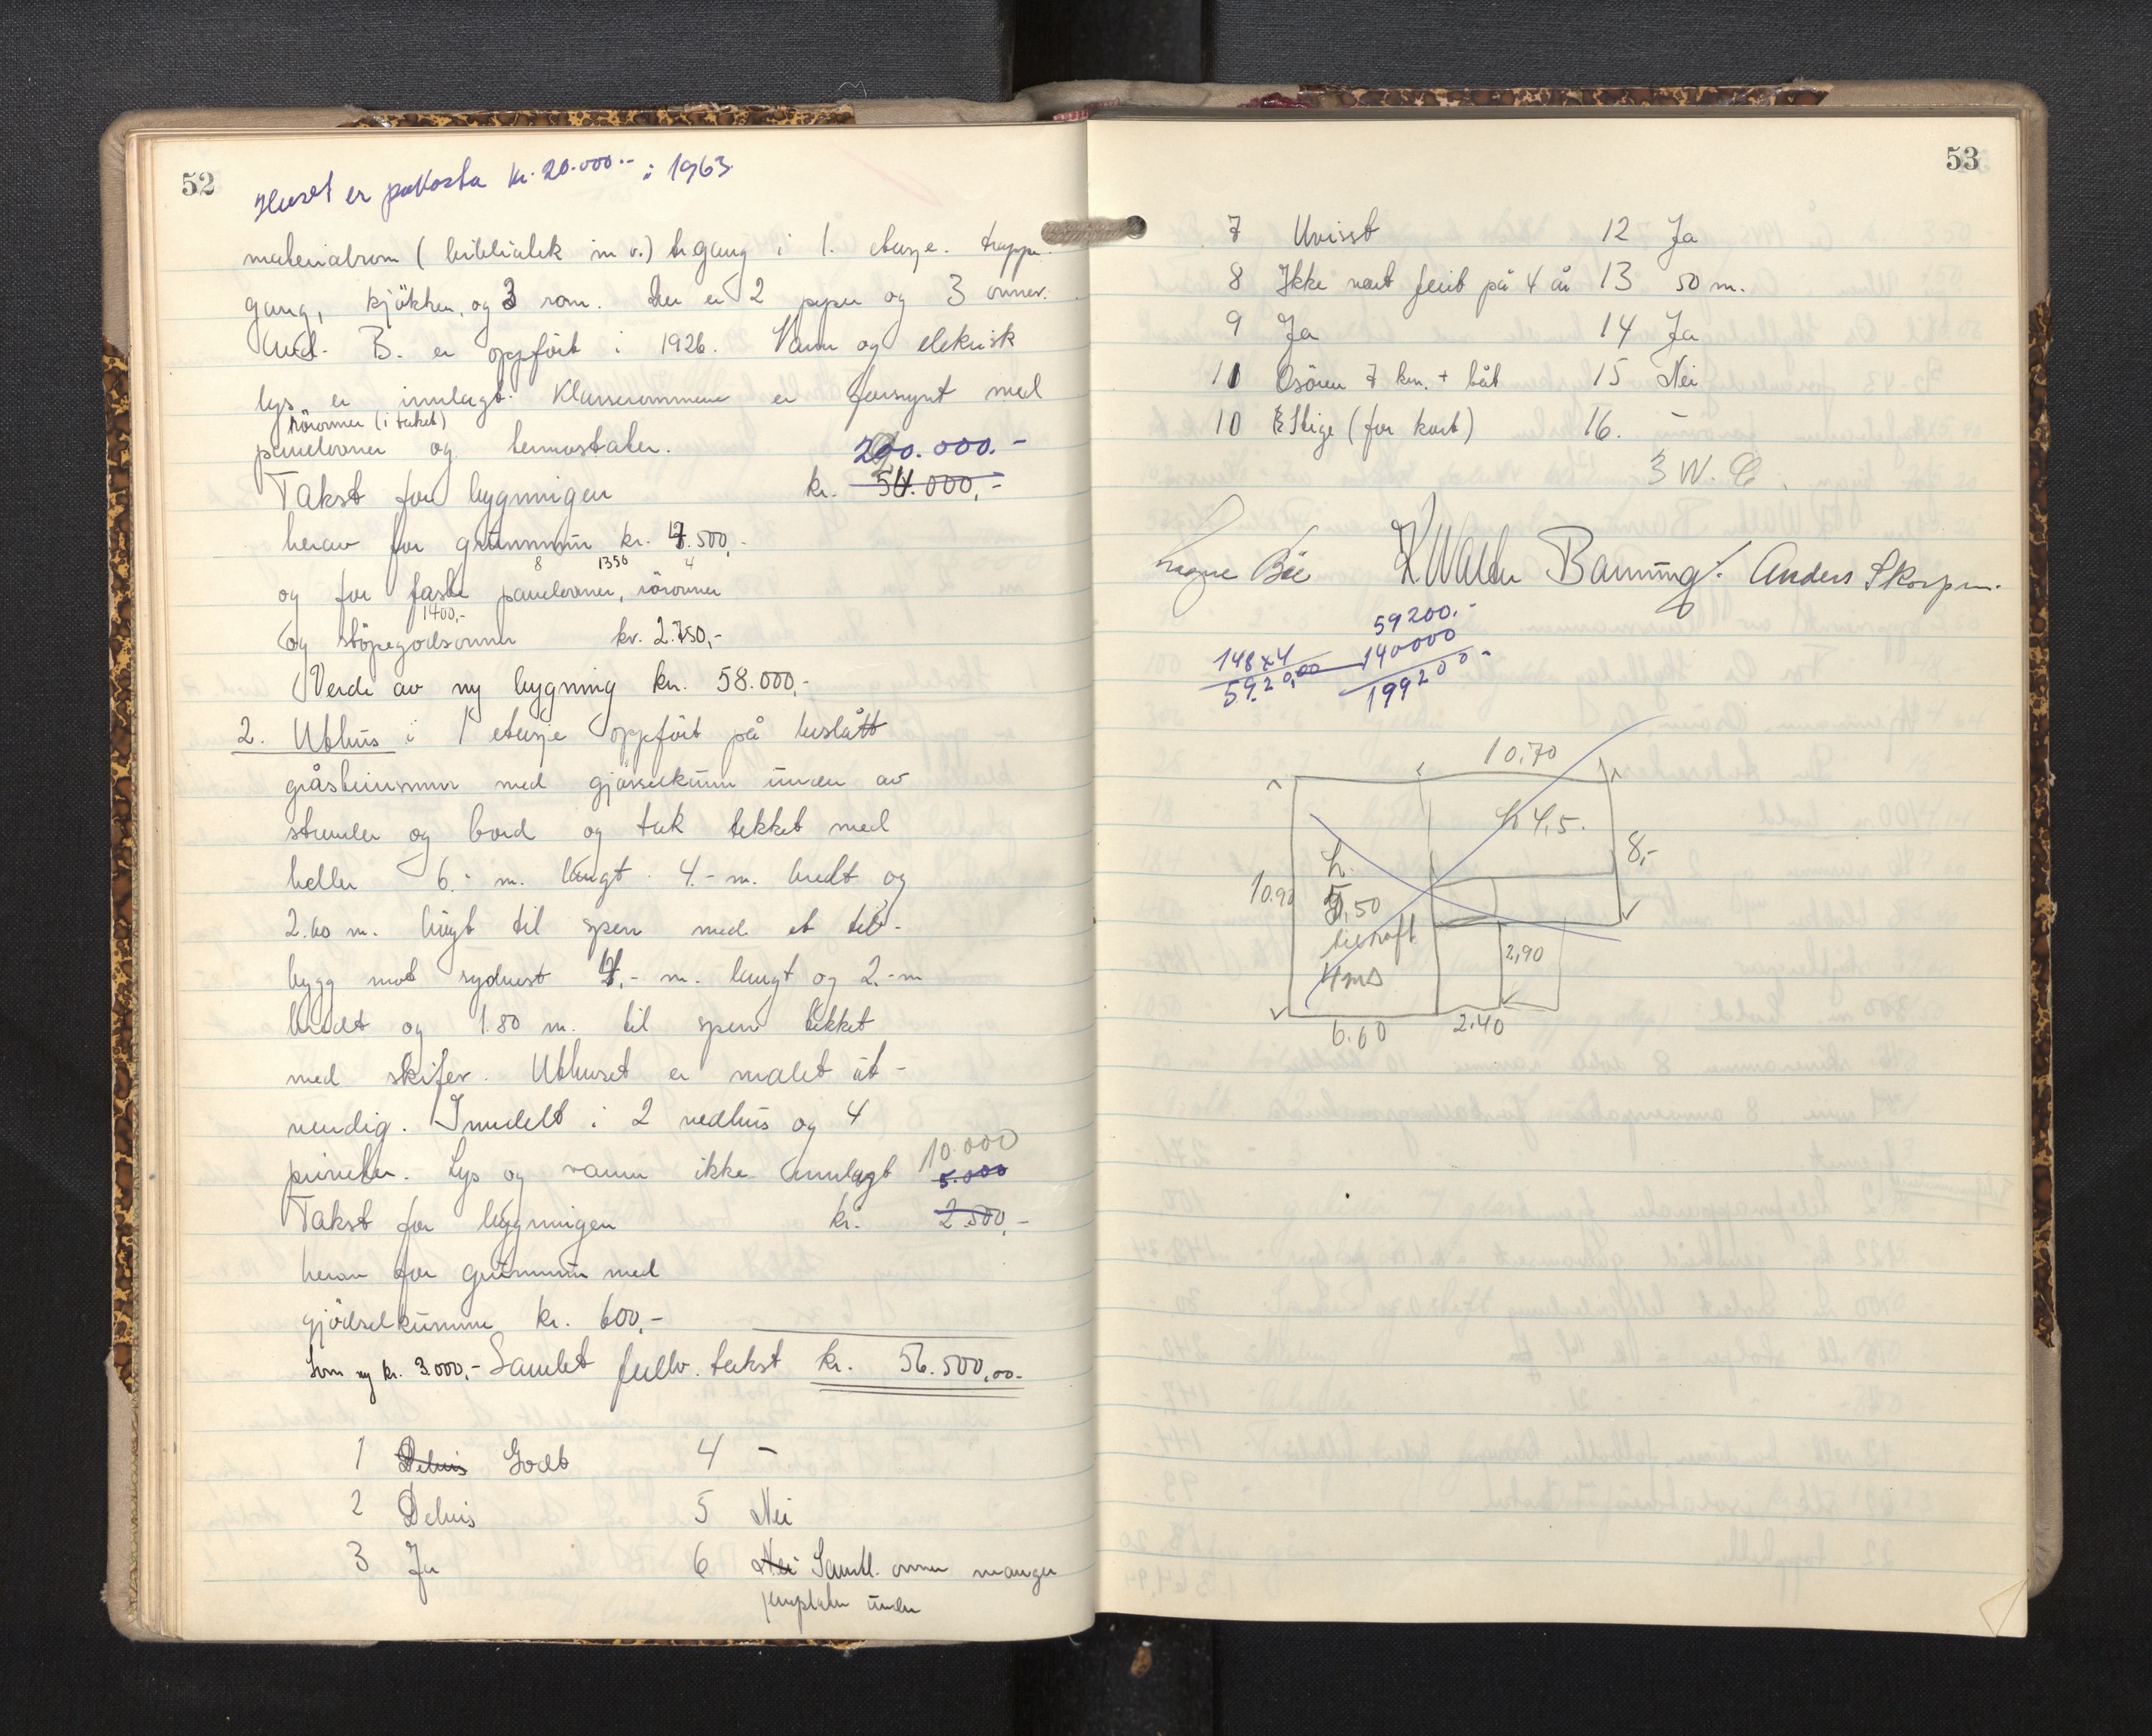 52
Huset er påkosta kr. 20.000.- i 1963.
materialrom (bibliotek m v.) tr gang i 1. etasje. trappe-
gang, kjökken, og 3 rom. Der er 2 piper og 3 ovner.
Avd. B. er oppfört i 1926. Vann og elektrisk
lys er innlagt. Klasserommene er forsynt med
rörovner (i taket)
panelovner og termostater.
200.000.-
Takst for bygningen kr. 54.000,-
herav for grunnmur kr. 4.500,-
8 1350 4
og for faste panelovner, rörovner
1400,-
og stöpegodsovner kr. 2.750,-
Verdi av ny bygning kr. 58.000,-
2. Uthus i 1 etasje oppfört på tuslått
gråsteinsmur med gjödselkum under av
stender og bord og tak tekket med
heller 6.- m. langt 4.- m. bredt og
2.60 m. högt til sperr med et til-
bygg mot sydvest 4,- m. langt og 2.- m
bredt og 1.80 m. til sperr tekket
med skifer. Uthuset er malet ut-
vendig. Inndelt i 2 vedhus og 4
priveter. Lys og vann ikke innlagt
10.000
5.000
Takst for bygningen kr. 2.500,-
herav for grunnmur med
gjödselkumme kr. 600,-
Som ny kr. 3.000,- Samlet fullv. takst kr. 56.500,00.-
1 Delvis Godt 4 -
2 Delvis 5 Nei
3 Ja 6 Nei Samtl. ovner mangler
jernplater under
53
7 Uvisst 12 Ja
8 Ikke vært feiet på 4 år 13 50 m.
9 Ja 14 Ja
11 Osören 7 km. + båt 15 Nei
10 Stige (for kort) 16. -
3 W. C.
Böe K Walde Banning. Anders Skorpen.
59200.-
148x4 140000
5920,00 199200-
10,70
h 4,5.
8,-
h.
10.90 5,50
tilloft
4 ms
2,90
6.60 2.40